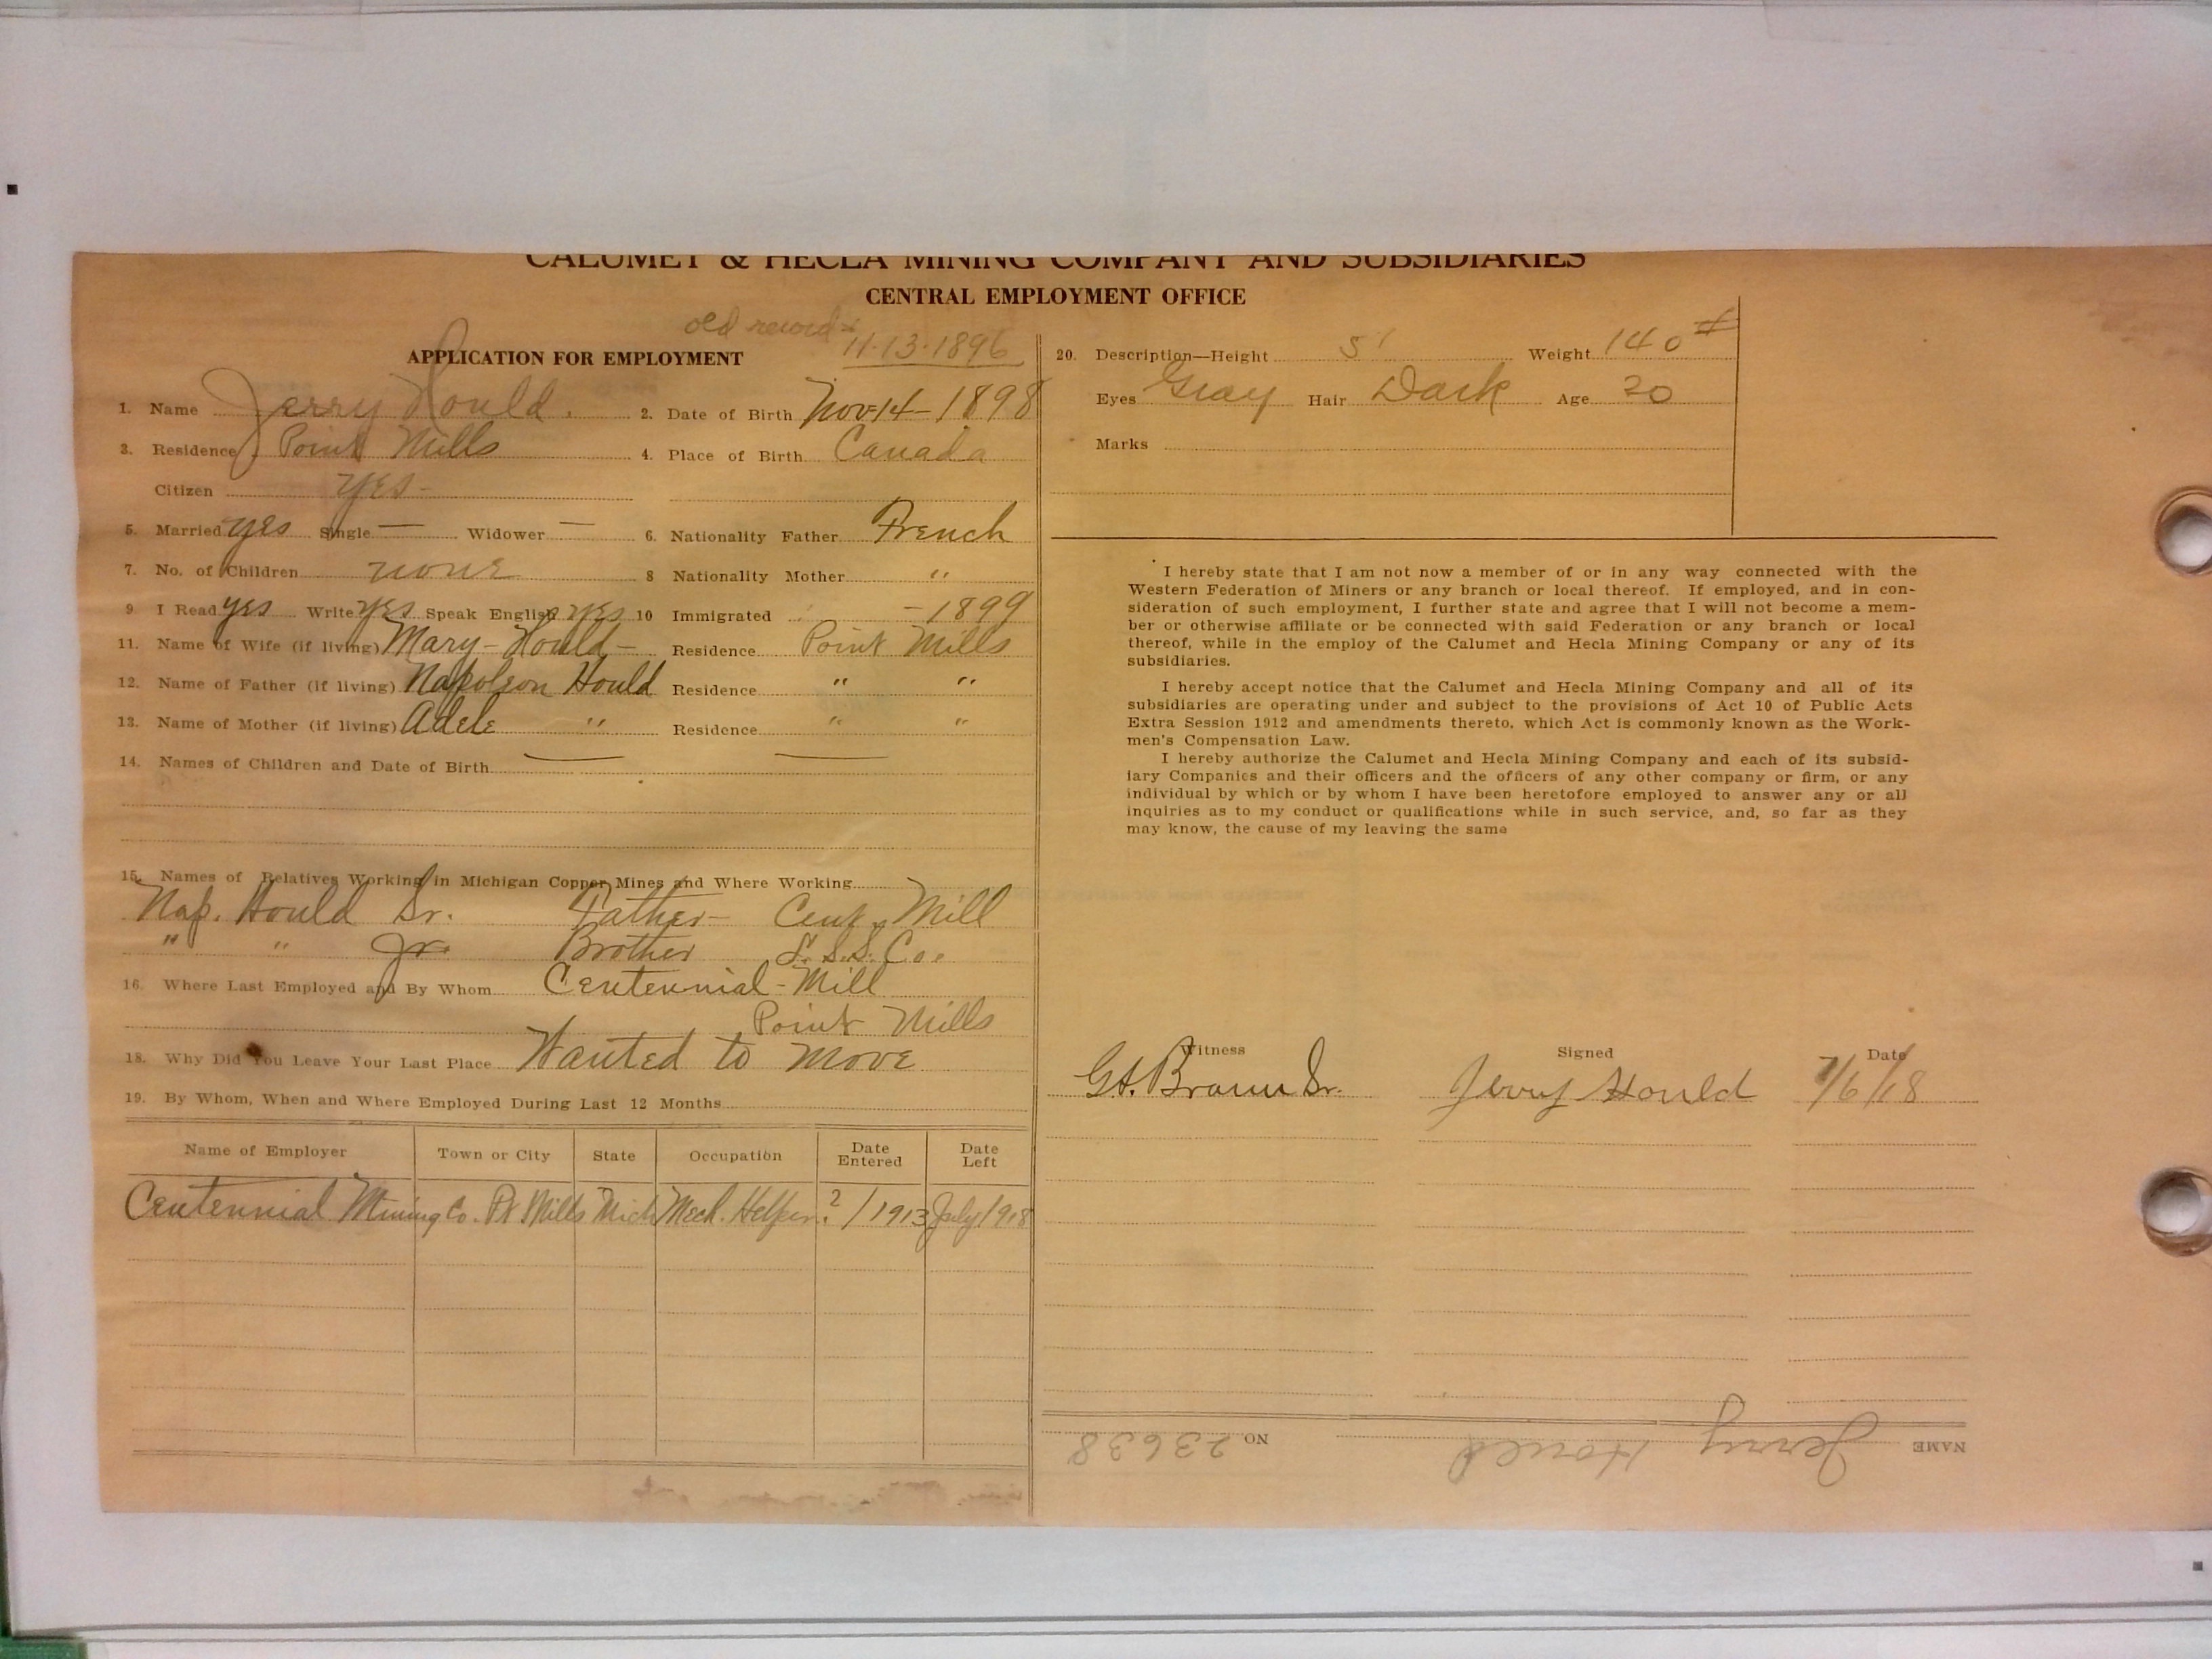 CALUMET & HECLA MINING COMPANY AND SUBSIDIARIES
CENTRAL EMPLOYMENT OFFICE
old record
11-13-1896
APPLICATION FOR EMPLOYMENT
1. Name Jerry Hould. 2. Date of Birth Nov-14-1898
3. Residence Point Mills 4. Place of Birth Canada
Citizen yes-
5. Married yes Single — Widower — 6. Nationality Father French
7. No. of Children none 8 Nationality Mother "
9. I Read yes Write yes Speak English yes 10 Immigrated - 1899
11. Name of Wife (if living) Mary-Hould- Residence Point Mills
12. Name of Father (if living) Napoleon Hould Residence " "
13. Name of Mother (if living) Adele " Residence " "
14. Names of Children and Date of Birth — —
15. Names of Relatives Working in Michigan Copper Mines and Where Working
Nap. Hould Sr. Father- Cent. Mill
" " Jr. Brother L.S.S.Co.
16. Where Last Employed and By Whom Centennial-Mill
Point Mills
18. Why Did You Leave Your Last Place Wanted to move
19. By Whom, When and Where Employed During Last 12 Months
Name of Employer Town or City State Occupation Date Entered Date Left
Centennial Mining Co. Pt Mills Mich Mech. Helper ?/1913 July/1918
20. Description—Height 5' Weight 140#
Eyes Gray Hair Dark Age 20
Marks
I hereby state that I am not now a member of or in any way connected with the
Western Federation of Miners or any branch or local thereof. If employed, and in con-
sideration of such employment, I further state and agree that I will not become a mem-
ber or otherwise affiliate or be connected with said Federation or any branch or local
thereof, while in the employ of the Calumet and Hecla Mining Company or any of its
subsidiaries.
I hereby accept notice that the Calumet and Hecla Mining Company and all of its
subsidiaries are operating under and subject to the provisions of Act 10 of Public Acts
Extra Session 1912 and amendments thereto, which Act is commonly known as the Work-
men's Compensation Law.
I hereby authorize the Calumet and Hecla Mining Company and each of its subsid-
iary Companies and their officers and the officers of any other company or firm, or any
individual by which or by whom I have been heretofore employed to answer any or all
inquiries as to my conduct or qualifications while in such service, and, so far as they
may know, the cause of my leaving the same
Witness Signed Date
Braun Sr. Jerry Hould 7/6/18
NAME Jerry Hould NO 23638